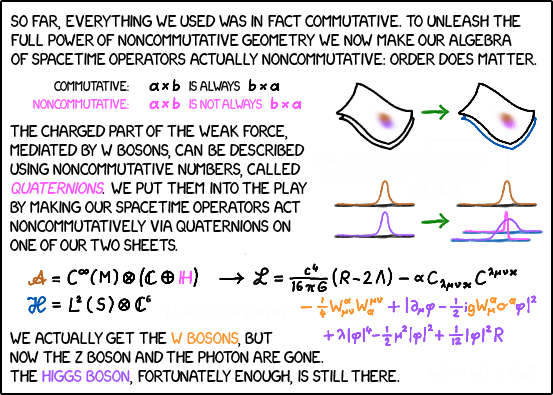 SO FAR, EVERYTHING WE USED WAS IN FACT COMMUTATIVE. TO UNLEASH THE
FULL POWER OF NONCOMMUTATIVE GEOMETRY WE NOW MAKE OUR ALGEBRA
OF SPACETIME OPERATORS ACTUALLY NONCOMMUTATIVE: ORDER DOES MATTER.
COMMUTATIVE: a × b IS ALWAYS b × a
NONCOMMUTATIVE: a × b IS NOT ALWAYS b × a
THE CHARGED PART OF THE WEAK FORCE,
MEDIATED BY W BOSONS, CAN BE DESCRIBED
USING NONCOMMUTATIVE NUMBERS, CALLED
QUATERNIONS. WE PUT THEM INTO THE PLAY
BY MAKING OUR SPACETIME OPERATORS ACT
NONCOMMUTATIVELY VIA QUATERNIONS ON
ONE OF OUR TWO SHEETS.
𝒜 = C^∞(M) ⊗ (ℂ ⊕ ℍ) → ℒ = c⁴/16πG (R - 2Λ) - α C_λμνκ C^λμνκ
ℋ = L²(S) ⊗ ℂ⁶ - ¼ W^α_μν W^μν_α + |∂_μφ - ½ i g W^α_μ σ^α φ|²
+ λ|φ|⁴ - ½ μ²|φ|² + 1/12 |φ|² R
WE ACTUALLY GET THE W BOSONS, BUT
NOW THE Z BOSON AND THE PHOTON ARE GONE.
THE HIGGS BOSON, FORTUNATELY ENOUGH, IS STILL THERE.